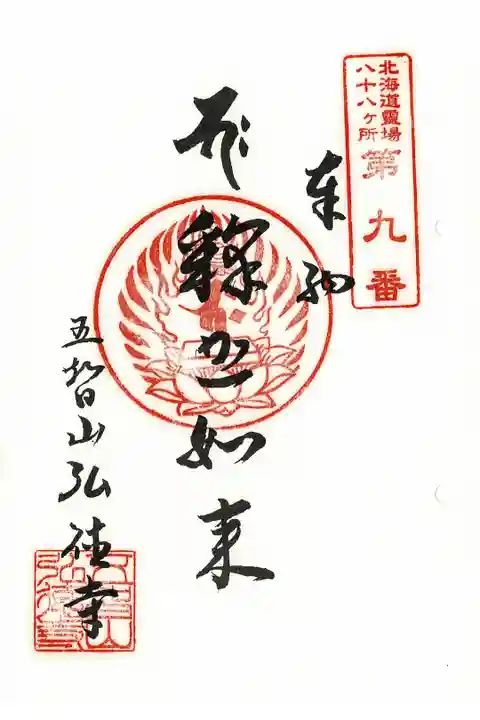 北海道靈場
八十八ヶ所
第九番
奉納
釋迦如来
五智山弘徳寺